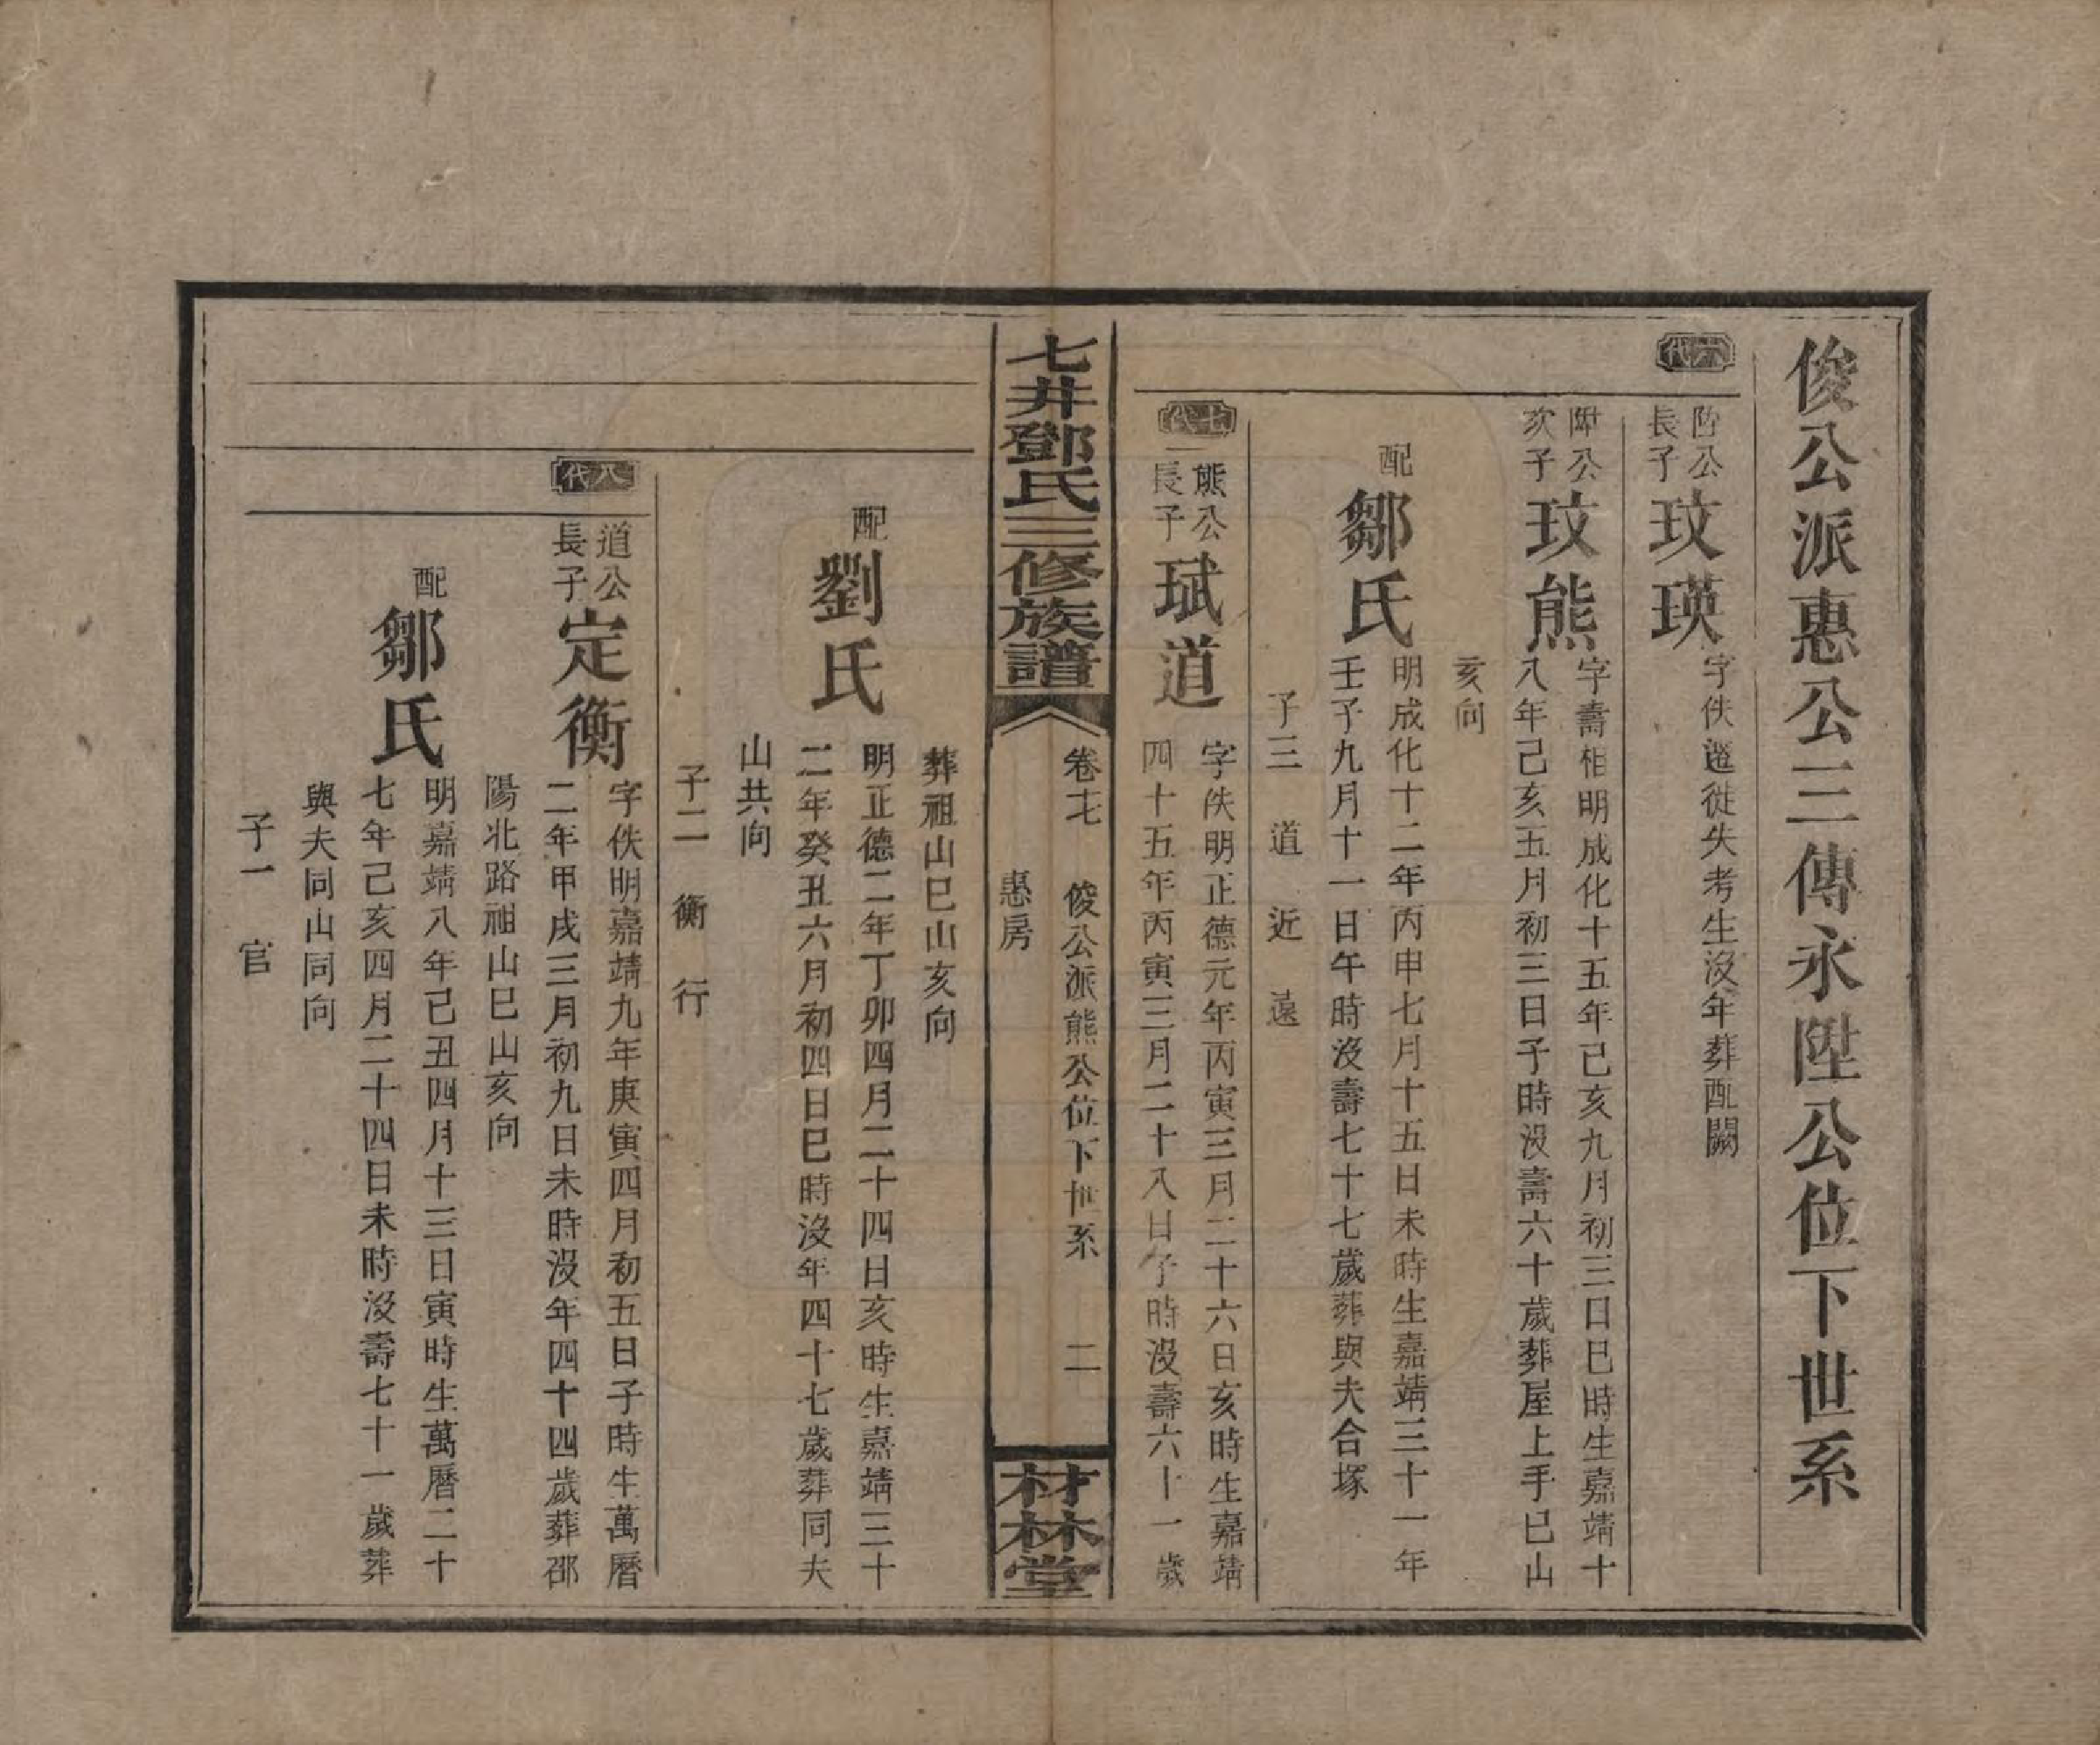 俊公派惠公三傳永陞公位下世系
六代
陞公長子玟瑛字佚遷徙失考生沒年葬配闕
陞公次子玟熊字壽相明成化十五年己亥九月初三日巳時生嘉靖十
八年己亥五月初三日子時沒壽六十歲葬屋上手巳山
亥向
配鄒氏明成化十二年丙申七月十五日未時生嘉靖三十一年
壬子九月十一日午時沒壽七十七歲葬與夫合塚
子三 道 近 遠
七代
熊公長子珷道字佚明正德元年丙寅三月二十六日亥時生嘉靖
四十五年丙寅三月二十八日子時沒壽六十一歲
七井鄧氏三修族譜
卷七 俊公派熊公位下世系 二
惠房
材林堂
葬祖山巳山亥向
配劉氏明正德二年丁卯四月二十四日亥時生嘉靖三十
二年癸丑六月初四日巳時沒年四十七歲葬同夫
山共向
子二 衡 行
八代
道公長子定衡字佚明嘉靖九年庚寅四月初五日子時生萬曆
二年甲戌三月初九日未時沒年四十四歲葬邵
陽北路祖山巳山亥向
配鄒氏明嘉靖八年己丑四月十三日寅時生萬曆二十
七年己亥四月二十四日未時沒壽七十一歲葬
與夫同山同向
子一 官